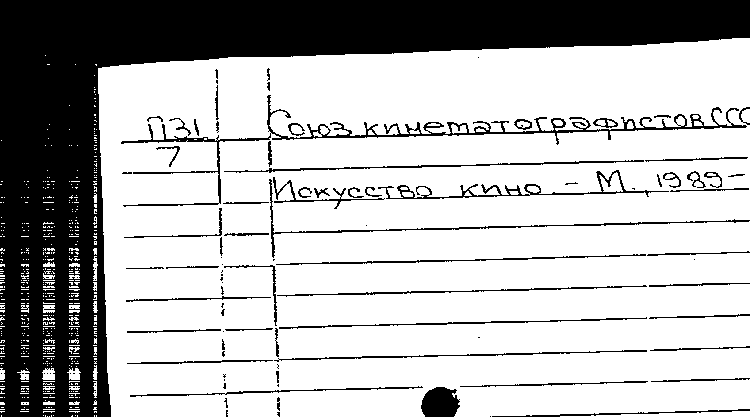 П31 Союз кинематографистов ССС
7
Искусство кино. - М., 1989-